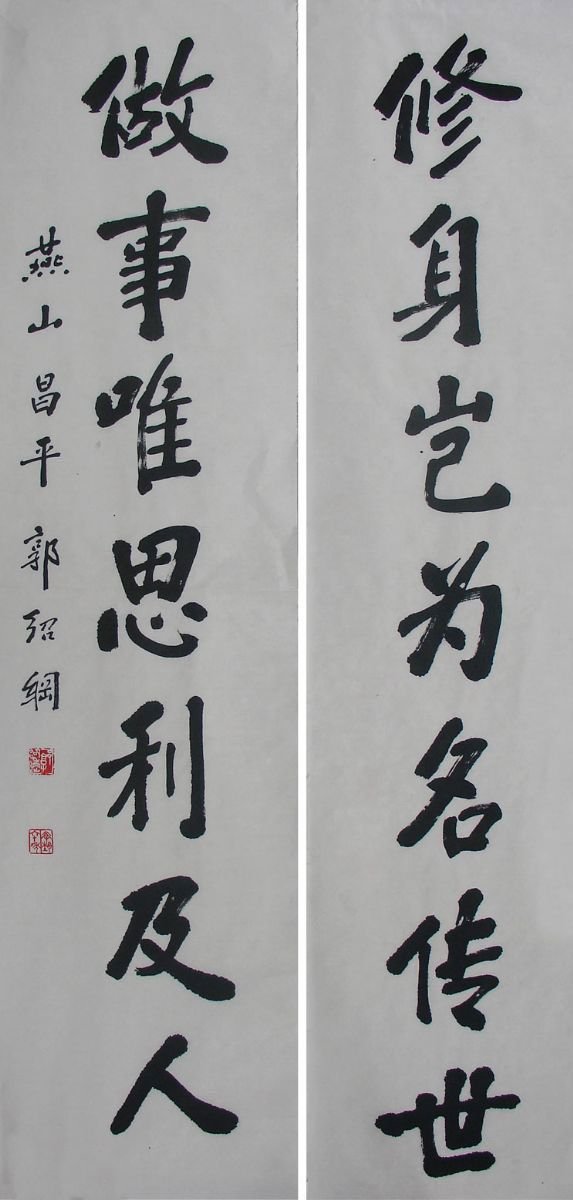 修身岂为名传世
做事唯思利及人
燕山昌平郭绍綱